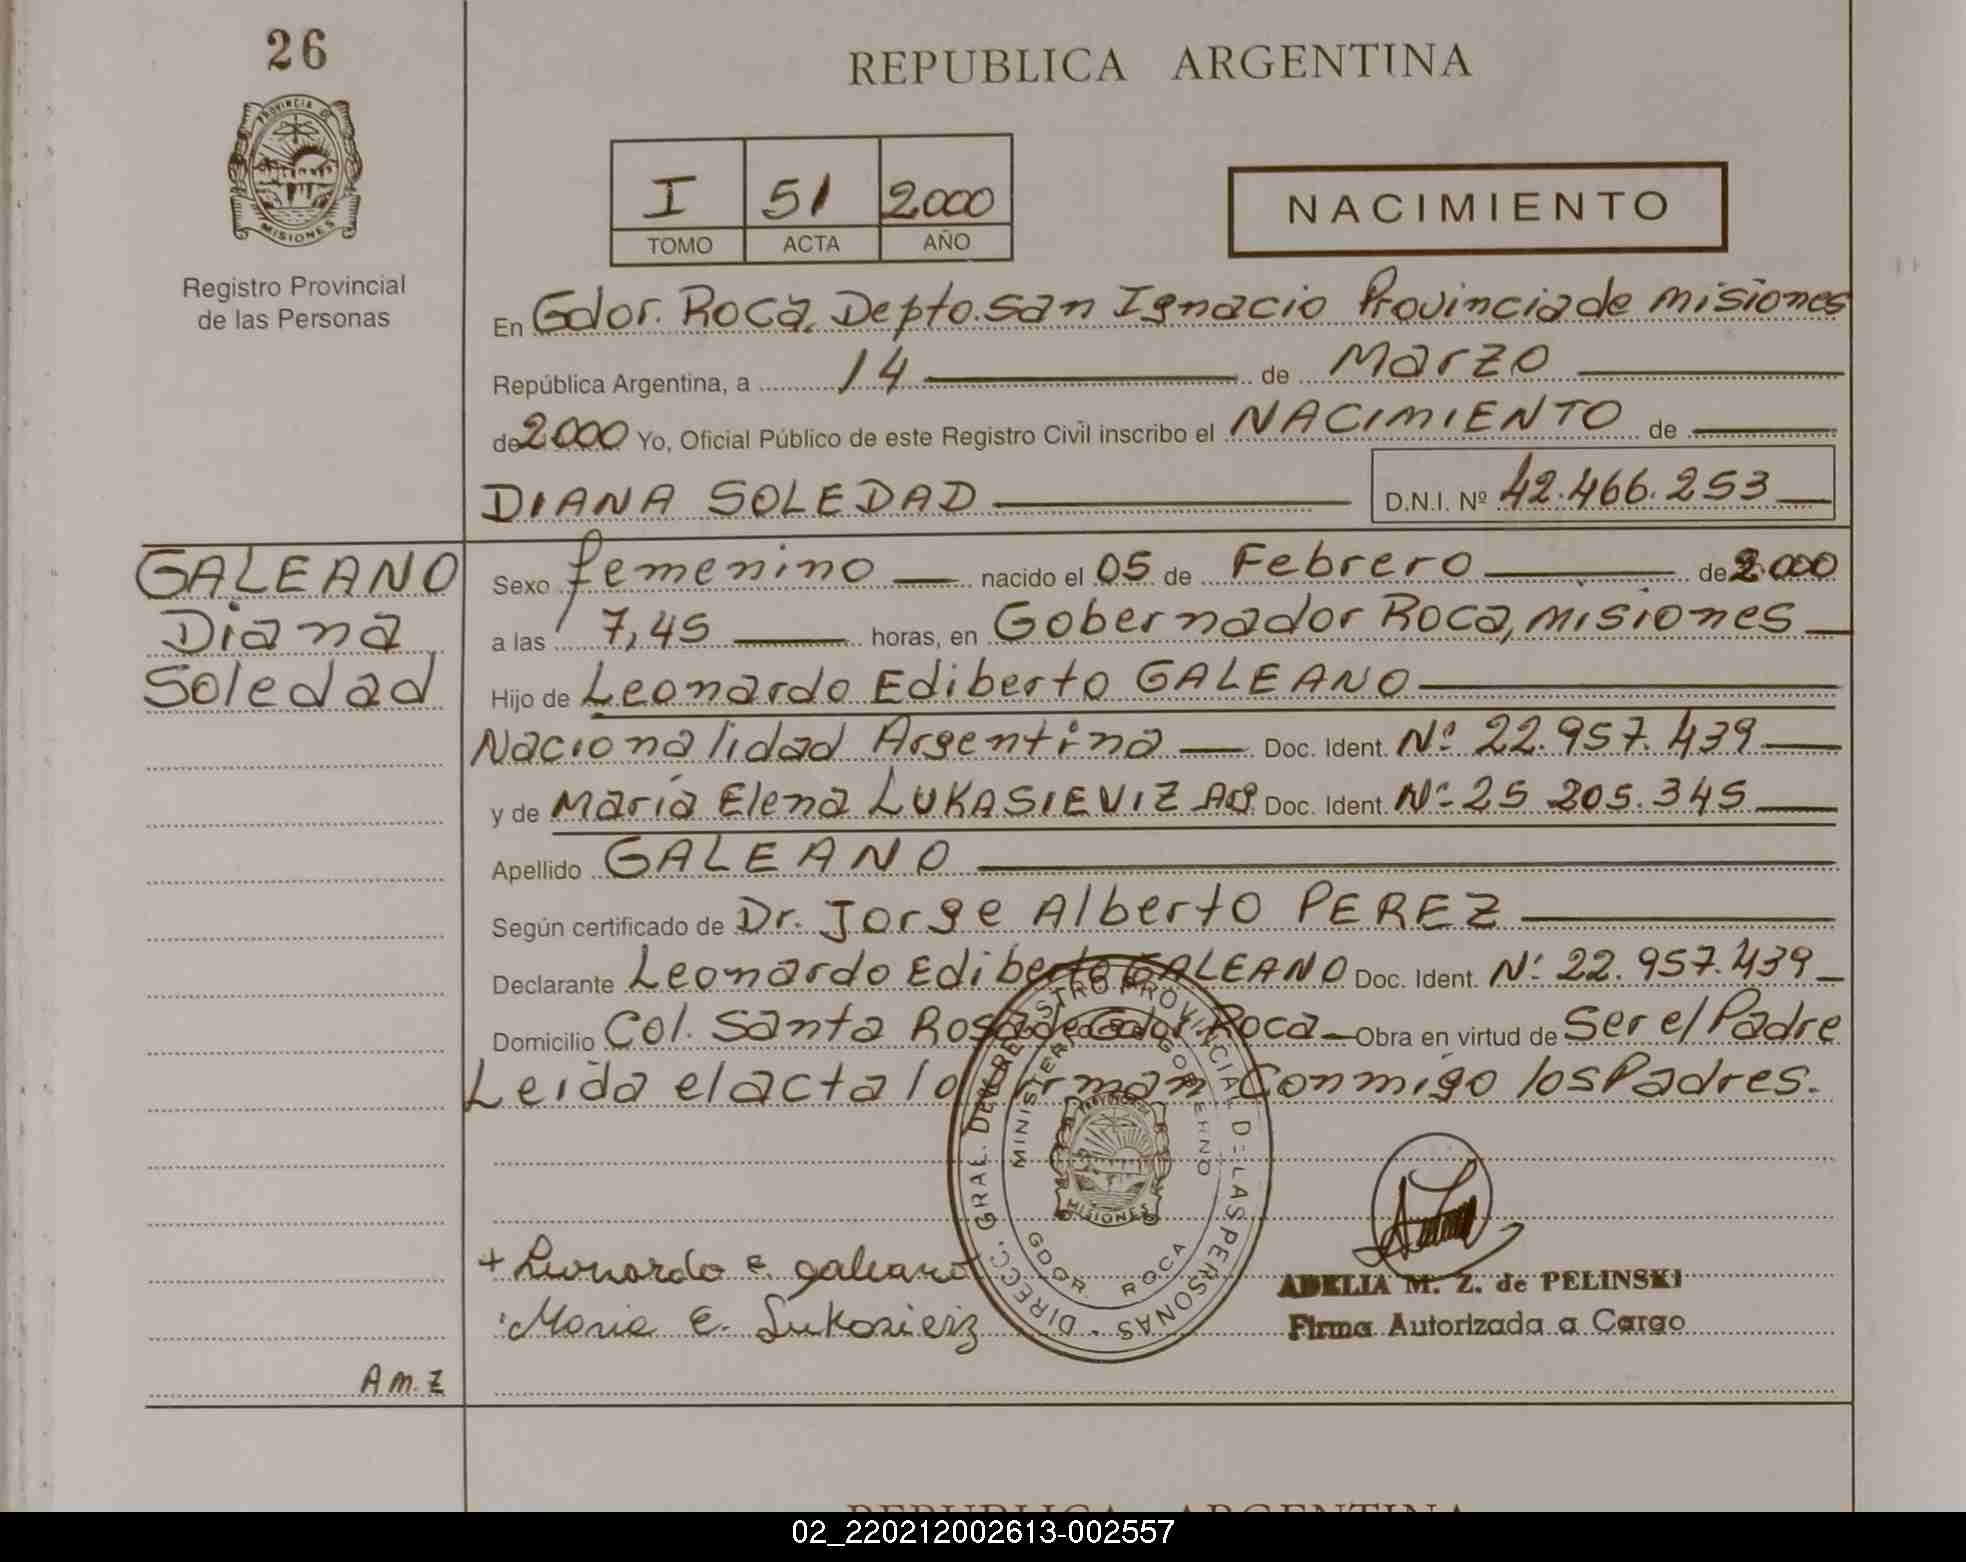 26
PROVINCIA DE
MISIONES
Registro Provincial
de las Personas
REPUBLICA ARGENTINA
I 51 2000
TOMO ACTA AÑO
NACIMIENTO
En Gdor. Roca, Depto. San Ignacio Provincia de misiones
República Argentina, a 14 de Marzo
de 2000 Yo, Oficial Público de este Registro Civil inscribo el NACIMIENTO de
DIANA SOLEDAD D.N.I. Nº 42.466.253
GALEANO
Diana
Soledad
Sexo femenino nacido el 05 de Febrero de 2000
a las 7,45 horas, en Gobernador Roca, misiones
Hijo de Leonardo Ediberto GALEANO
Nacionalidad Argentina Doc. Ident. Nº 22.957.439
y de María Elena LUKASIEVIZ Arg. Doc. Ident. Nº 25 205.345
Apellido GALEANO
Según certificado de Dr. Jorge Alberto PEREZ
Declarante Leonardo Ediberto GALEANO Doc. Ident. Nº 22.957.439
Domicilio Col. Santa Rosa de Gdor. Roca Obra en virtud de Ser el Padre
Leida el acta lo firman Conmigo los Padres.
DIRECC. GRAL. DEL REGISTRO PROVINCIAL DE LAS PERSONAS
MINISTERIO DE GOBIERNO
MISIONES
GDOR. ROCA
+ Leonardo E. galeano
Maria E. Lukasieviz
ADELIA M. Z. de PELINSKI
Firma Autorizada a Cargo
A.M.Z
REPUBLICA ARGENTINA
02_220212002613-002557